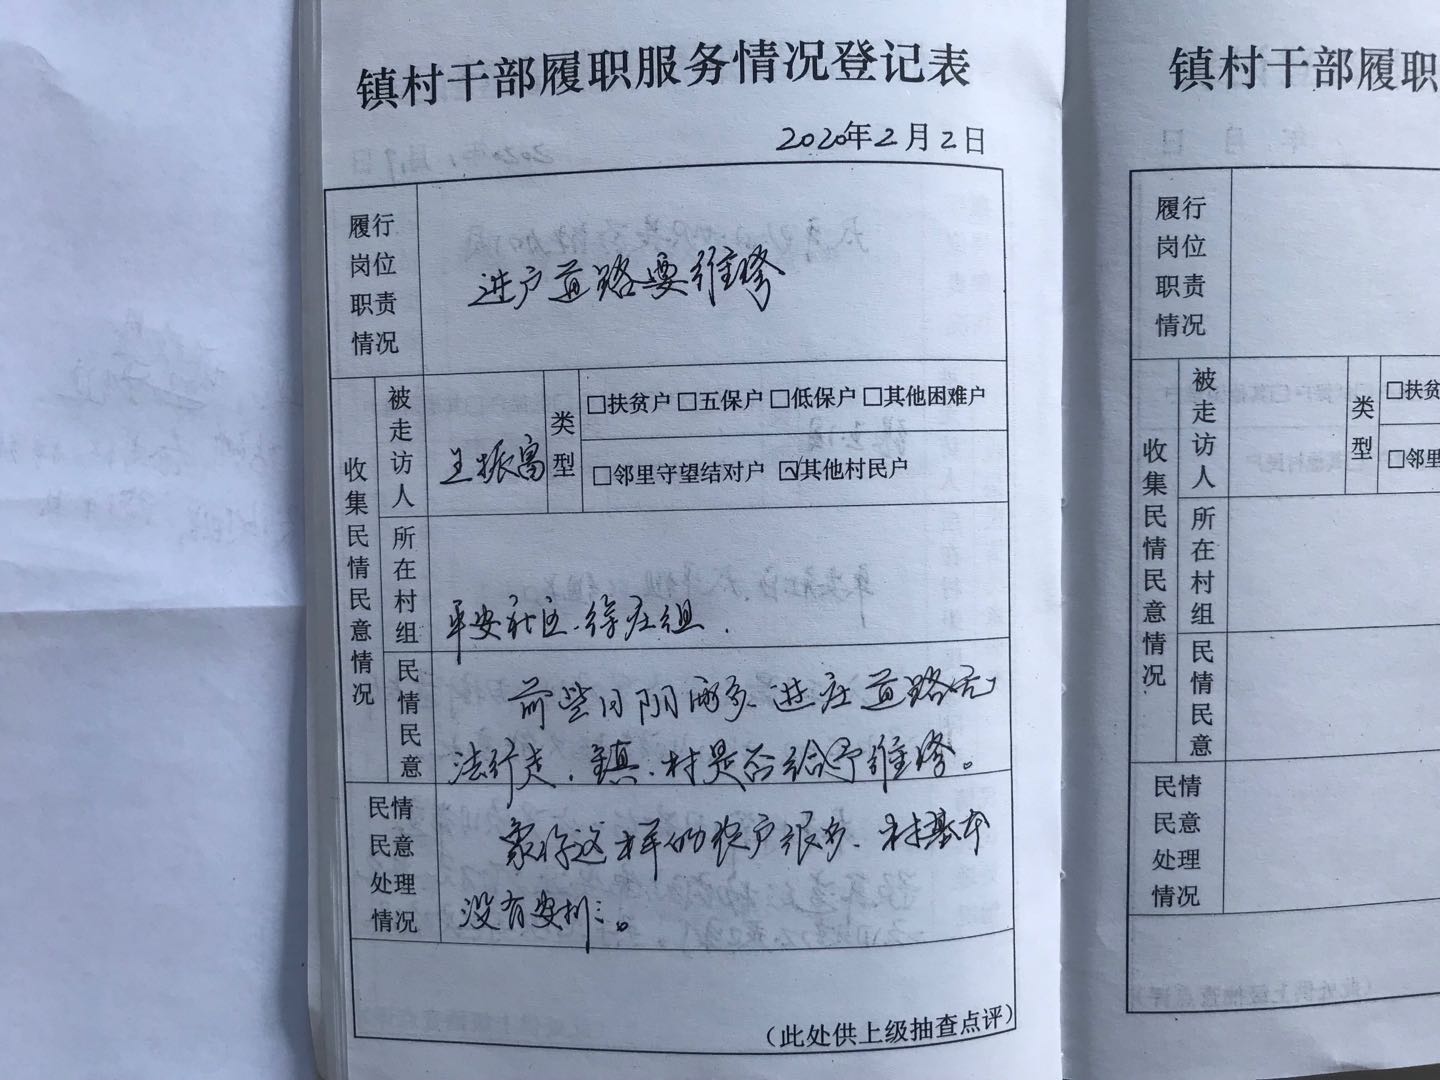 镇村干部履职服务情况登记表
2020年2月2日
履行
岗位
职责
情况
进户道路要维修
收集民情民意情况
被走访人
王振富
类型
□扶贫户□五保户□低保户□其他困难户
□邻里守望结对户 ☑其他村民户
所在村组
平安社区、徐庄组.
民情民意
前些日阴雨多、进庄道路无
法行走，镇、村是否给予维修。
民情
民意
处理
情况
象你这样的农户很多、村基本
没有安排。
（此处供上级抽查点评）
镇村干部履职
年 月 日
履行
岗位
职责
情况
收集民情民意情况
被走访人
类型
□扶贫
□邻里
所在村组
民情民意
民情
民意
处理
情况